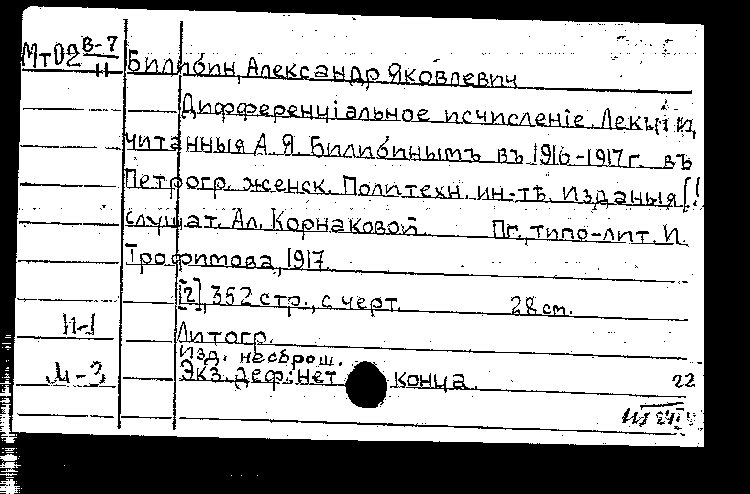 МтО2 В-7
II
Билибин, Александр Яковлевич
Дифференціальное исчисленіе. Лекціи,
читанныя А. Я. Билибинымъ въ 1916-1917 г. въ
Петрогр. женск. Политехн. ин-тѣ. Изданыя [!
слушат. Ал. Корнаковой. Пг., типо-лит. И.
Трофимова, 1917.
[2], 352 стр., с черт. 28 см.
II-1
Литогр.
Изд. несброш.
М-3 Экз. деф.: нет конца. 22